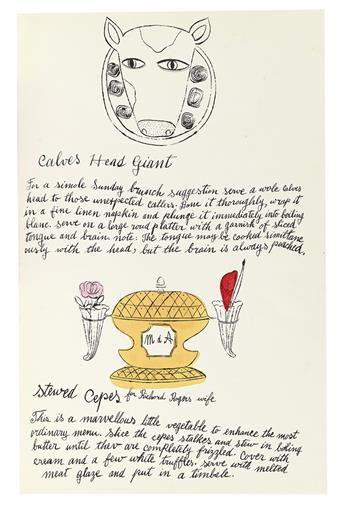 Calves Head Giant
For a simole Sunday brunch suggestin serve a wole calves
head to those unexpected callers. Bone it thoroughly, wrap it
in a fine linen napkin and plunge it immediately into boiling
blanc. serve on a large roud platter with a garnish of sliced
tongue and brain. note: The tongue may be cooked simltane
ously with the head, but the brain is always poached.
M d A
Stewed Cepes for Richard Rogers wife
This is a marvellous little vegetable to enhance the most
ordinary menu. Slice the cepes stalkes and stew in boling
butter until they are completely frizzled. Cover with
cream and a few white truffles. serve with melted
meat glaze and put in a timbale.